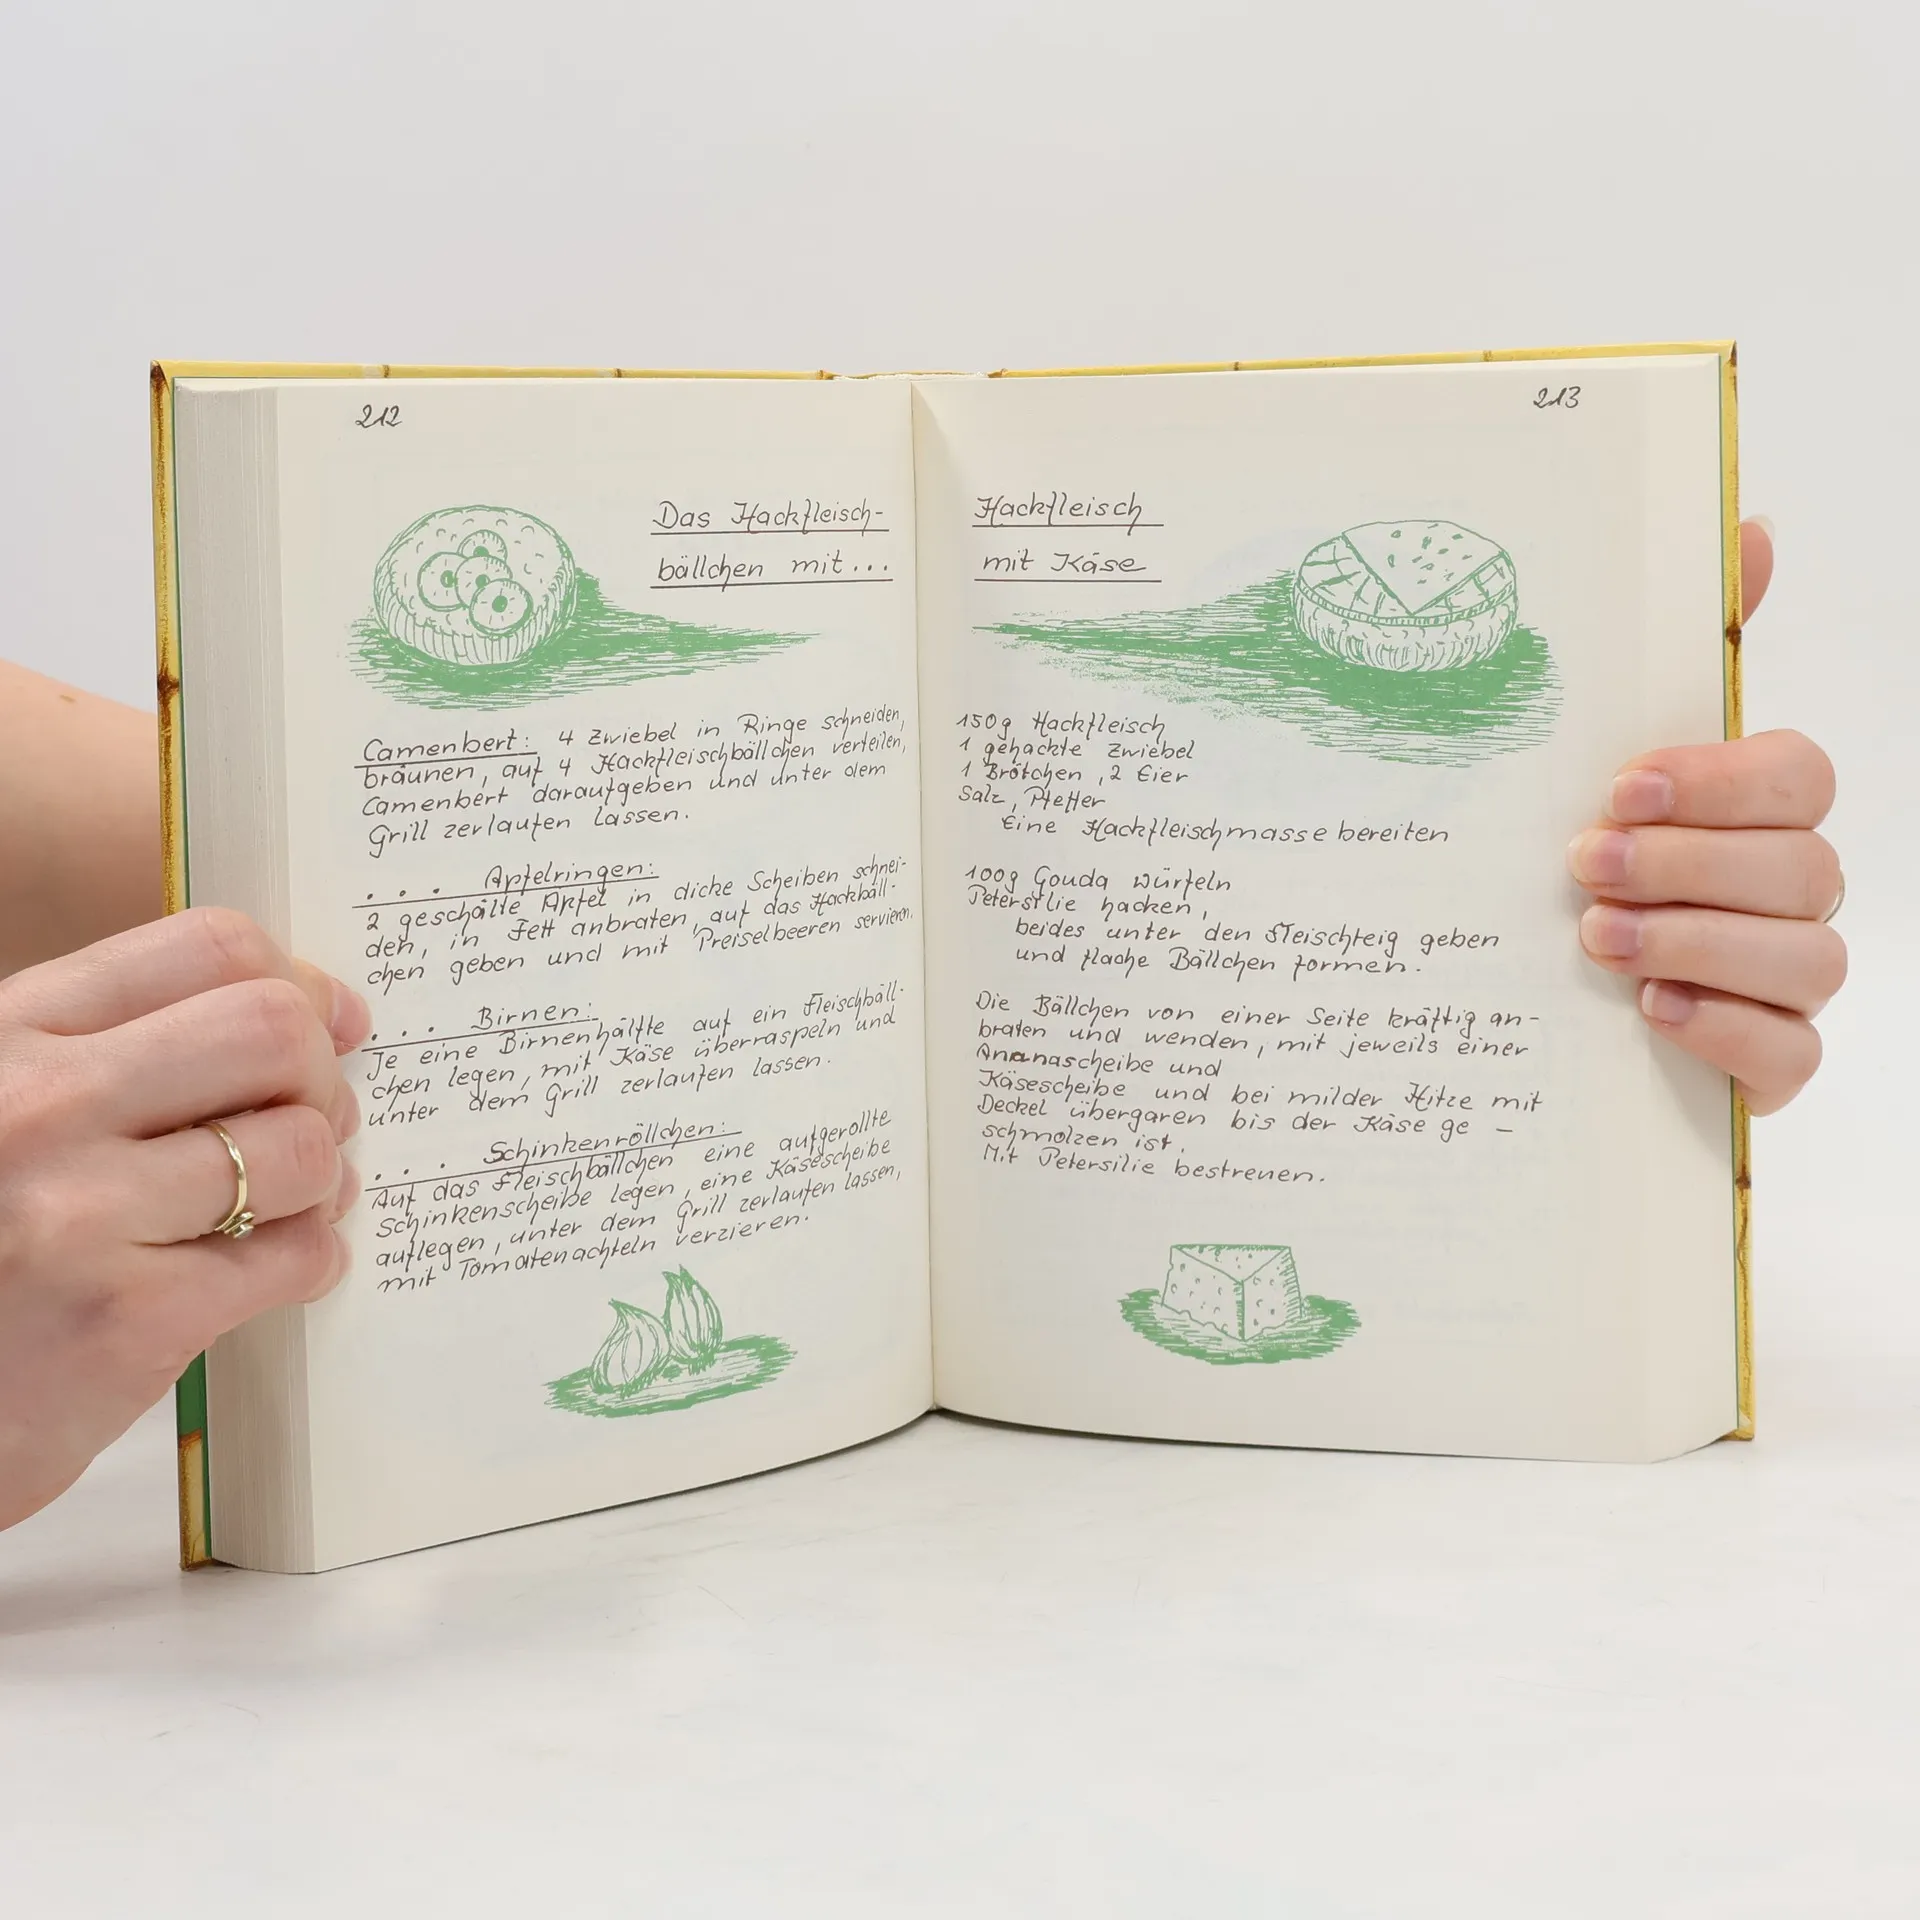 212
Das Hackfleisch-
bällchen mit...
Camenbert: 4 Zwiebel in Ringe schneiden,
bräunen, auf 4 Hackfleischbällchen verteilen,
Camenbert daraufgeben und unter dem
Grill zerlaufen lassen.
... Apfelringen:
2 geschälte Äpfel in dicke Scheiben schnei-
den, in Fett anbraten, auf das Hackbäll-
chen geben und mit Preiselbeeren servieren.
... Birnen:
Je eine Birnenhälfte auf ein Fleischbäll-
chen legen, mit Käse überraspeln und
unter dem Grill zerlaufen lassen.
... Schinkenröllchen:
Auf das Fleischbällchen eine aufgerollte
Schinkenscheibe legen, eine Käsescheibe
auflegen, unter dem Grill zerlaufen lassen,
mit Tomatenachteln verzieren.
213
Hackfleisch
mit Käse
150g Hackfleisch
1 gehackte Zwiebel
1 Brötchen, 2 Eier
Salz, Pfeffer
Eine Hackfleischmasse bereiten
100g Gouda würfeln
Petersilie hacken,
beides unter den Fleischteig geben
und flache Bällchen formen.
Die Bällchen von einer Seite kräftig an-
braten und wenden, mit jeweils einer
Ananascheibe und
Käsescheibe und bei milder Hitze mit
Deckel übergaren bis der Käse ge -
schmolzen ist.
Mit Petersilie bestreuen.